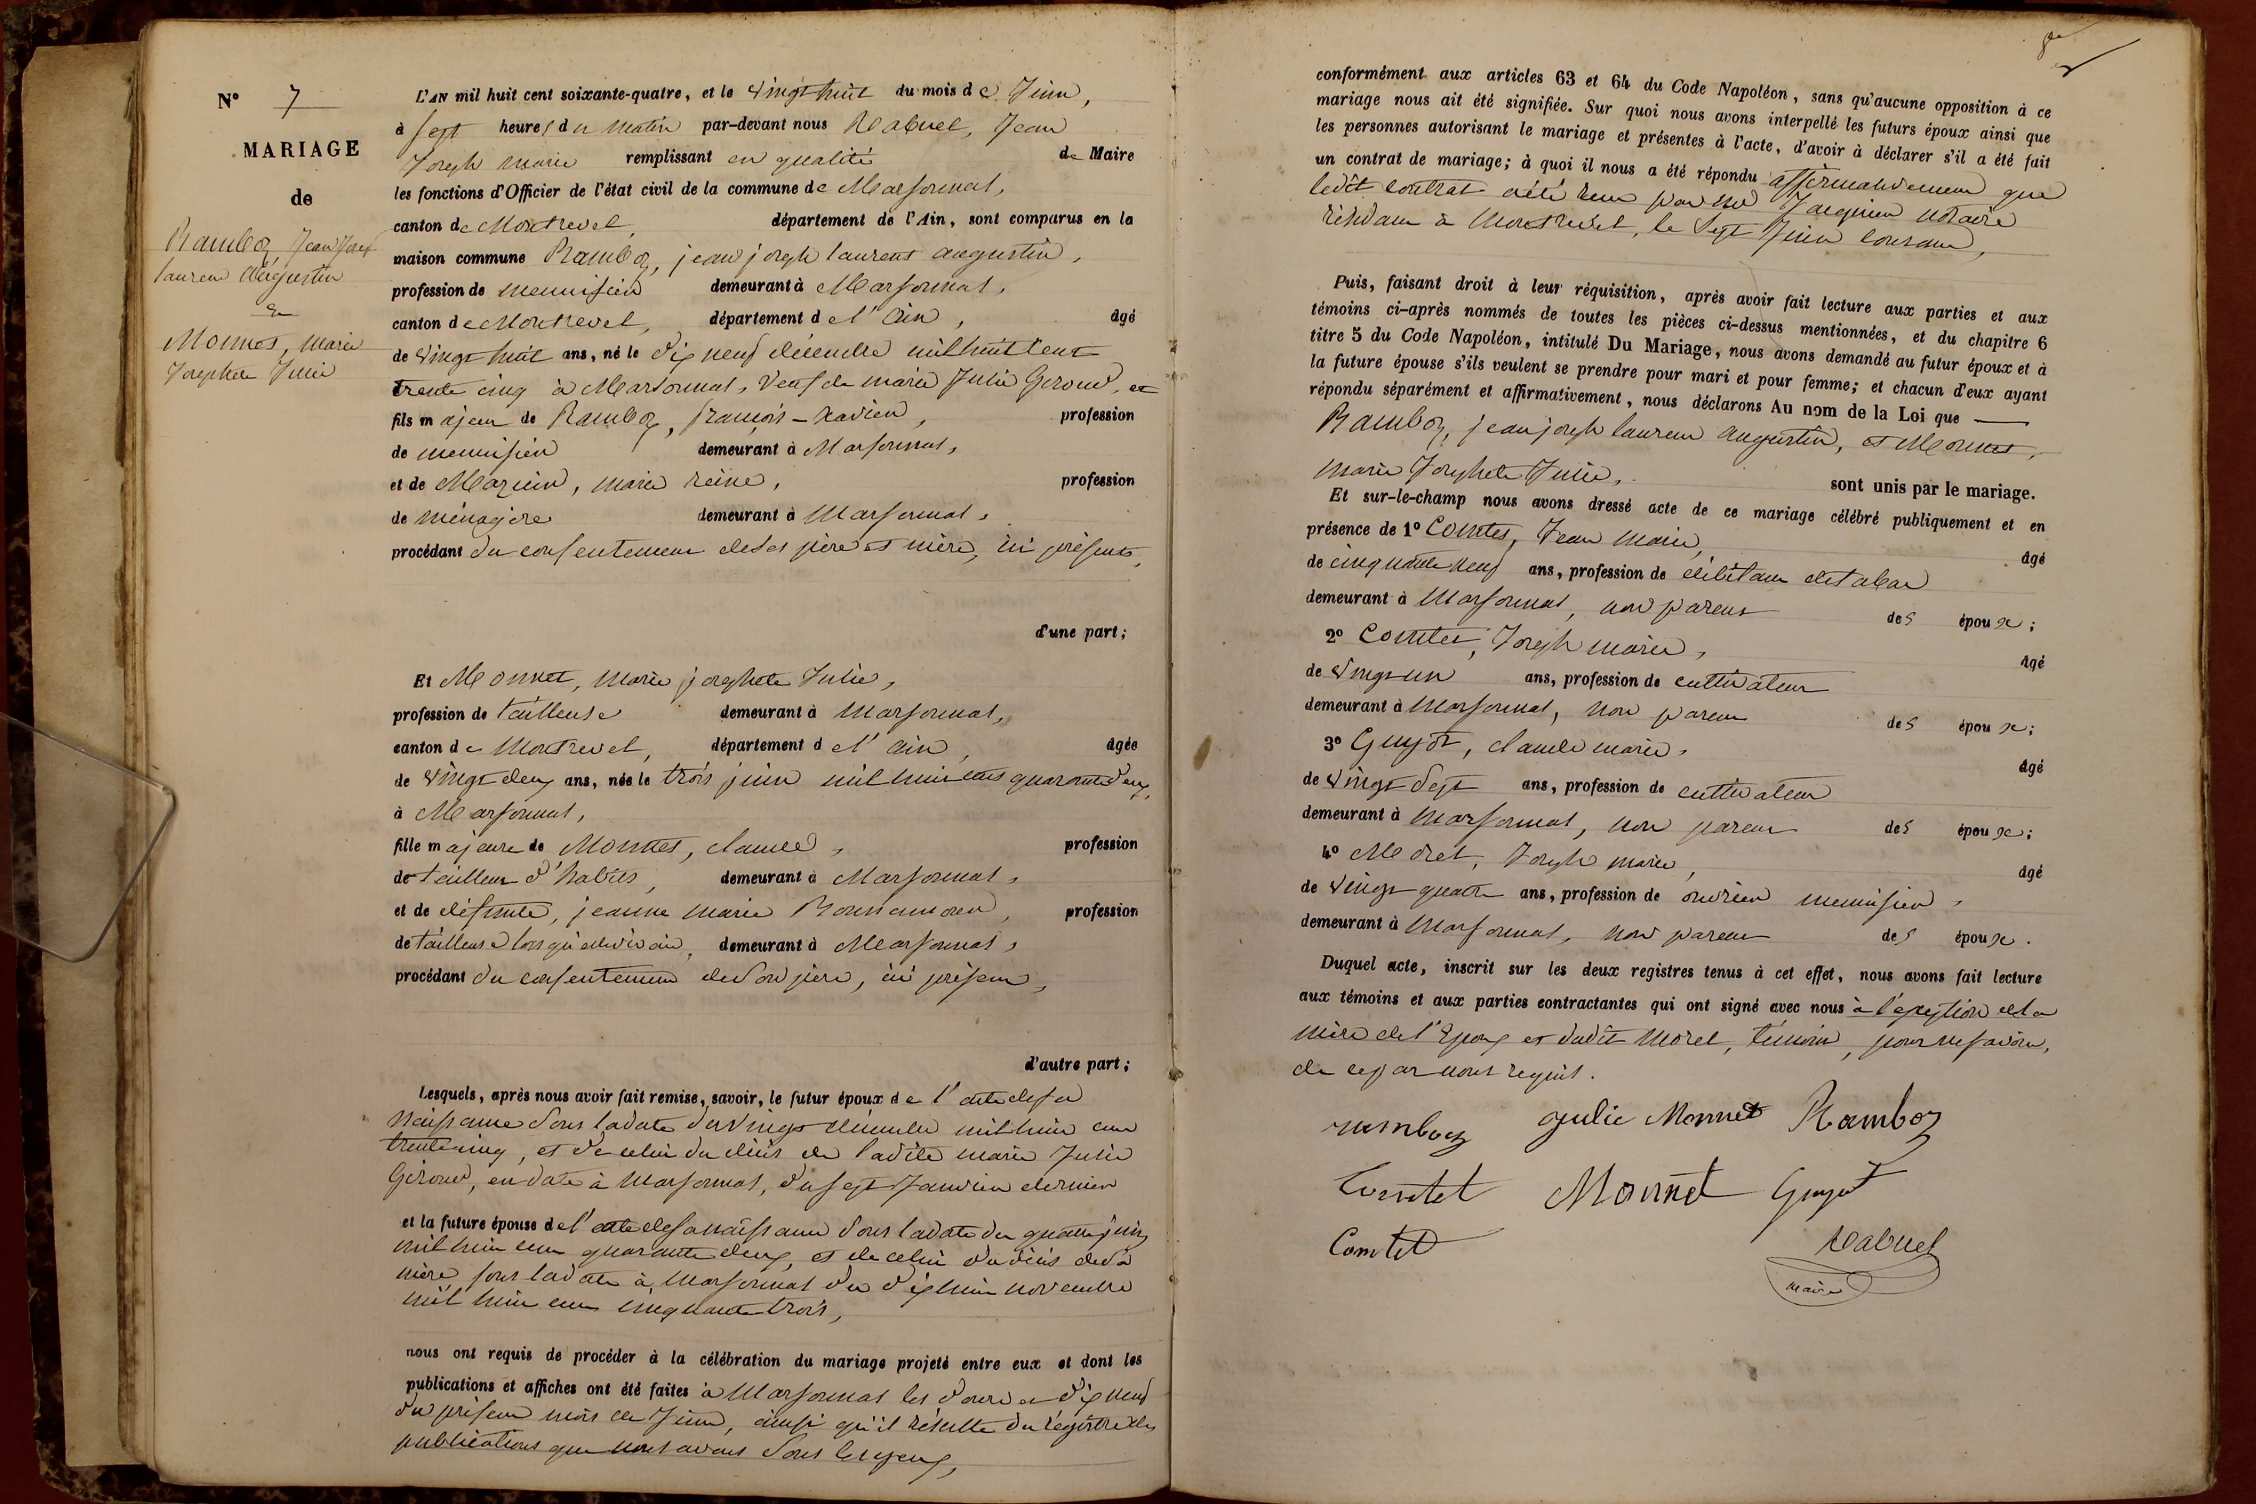 N° 7
MARIAGE
de
Ramboz, Jean Josep
laurent Augustin
et
Monnet, marie
Josephete Julie
L'AN mil huit cent soixante-quatre, et le vingt huit du mois de Juin,
à sept heures du matin par-devant nous Rabuel, Jean
Joseph marie remplissant en qualité de Maire
les fonctions d'Officier de l'état civil de la commune de Marsonnas,
canton de Montrevel, département de l'Ain, sont comparus en la
maison commune Ramboz, jean joseph laurent augustin,
profession de menuisier demeurant à Marsonnas,
canton de Montrevel, département de l'ain, âgé
de vingt huit ans, né le dix neuf décembre mil huit cent
trente cinq à Marsonnas, veuf de marie Julie Giroud, et
fils majeur de Ramboz, françois-xavier, profession
de menuisier demeurant à Marsonnas,
et de Mazuir, marie reine, profession
de ménagère demeurant à Marsonnas,
procédant du consentement de ses père et mère, ici présents,
d'une part;
Et Monnet, Marie josephete Julie,
profession de tailleuse demeurant à Marsonnas,
canton de Montrevel, département de l'ain, âgée
de vingt deux ans, née le trois juin mil huit cent quarante deux,
à Marsonnas,
fille majeure de Monnet, claude, profession
de tailleur d'habits, demeurant à Marsonnas,
et de défunte, jeanne marie profession
de tailleuse lorsqu'elle vivait, demeurant à Marsonnas,
procédant du consentement de son père, ici présent,
d'autre part;
Lesquels, après nous avoir fait remise, savoir, le futur époux de l'acte de sa
naissance sous la date du vingt décembre mil huit cent
trente cinq, et de celui du décès de ladite marie Julie
Giroud, en date à Marsonnas, du sept Janvier dernier
et la future épouse de l'acte de sa naissance sous la date du quatre juin
mil huit cent quarante deux, et de celui du décès de sa
mère, sous la date à Marsonnas du dix huit novembre
mil huit cent cinquante trois,
nous ont requis de procéder à la célébration du mariage projeté entre eux et dont les
publications et affiches ont été faites à Marsonnas les douze et dix neuf
du présent mois de Juin, ainsi qu'il résulte du régistre des
publications que nous avons sous les yeux,
conformément aux articles 63 et 64 du Code Napoléon, sans qu'aucune opposition à ce
mariage nous ait été signifiée. Sur quoi nous avons interpellé les futurs époux ainsi que
les personnes autorisant le mariage et présentes à l'acte, d'avoir à déclarer s'il a été fait
un contrat de mariage; à quoi il nous a été répondu affirmativement que
ledit contrat a été reçu par me notaire
résidant à Montrevel, le sept Juin courant,
Puis, faisant droit à leur réquisition, après avoir fait lecture aux parties et aux
témoins ci-après nommés de toutes les pièces ci-dessus mentionnées, et du chapitre 6
titre 5 du Code Napoléon, intitulé Du Mariage, nous avons demandé au futur époux et à
la future épouse s'ils veulent se prendre pour mari et pour femme; et chacun d'eux ayant
répondu séparément et affirmativement, nous déclarons Au nom de la Loi que
Ramboz, jean joseph laurent augustin, et Monnet,
marie Josephete Julie, sont unis par le mariage.
Et sur-le-champ nous avons dressé acte de ce mariage célébré publiquement et en
présence de 1° Comtet, Jean Marie, âgé
de cinquante neuf ans, profession de débitant de tabac
demeurant à Marsonnas, non parent des époux;
2° Comtet, Joseph marie, âgé
de vingt un ans, profession de cultivateur
demeurant à Marsonnas, non parent des époux;
3° Guyot, claude marie, âgé
de vingt sept ans, profession de cultivateur
demeurant à Marsonnas, non parent des époux;
4° Morel, Joseph marie, âgé
de vingt quatre ans, profession de ouvrier menuisier,
demeurant à Marsonnas, non parent des époux.
Duquel acte, inscrit sur les deux registres tenus à cet effet, nous avons fait lecture
aux témoins et aux parties contractantes qui ont signé avec nous à l'exeption de la
mère de l'Epoux et dudit Morel, témoin, pour ne savoir,
de ce par nous requis.
ramboz julie Monnet Ramboz
Comtet Monnet Guyot
Comtet Rabuel
maire